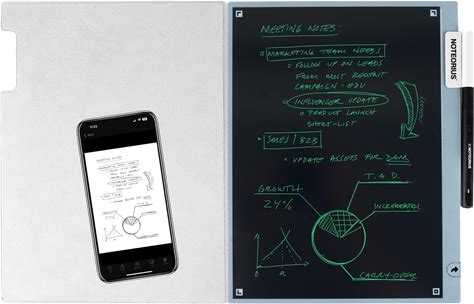 MEETING NOTES:
MARKETING TEAM NEEDS
FOLLOW UP ON LEADS
FROM MOST RECENT
CAMPAIGN - EDU
INFLUENCER UPDATE
PRODUCT LAUNCH
SHORT-LIST
SALES | B2B
UPDATE ASSETS FOR DAM
T.A.D.
GROWTH
24%
INCREMENTAL
CARRY-OVER
0 a
NOTEORIUS
NOTEORIUS
11:53
MEETING NOTES